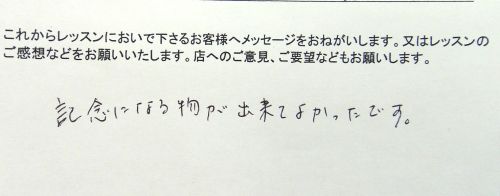 これからレッスンにおいで下さるお客様へメッセージをおねがいします。又はレッスンの
ご感想などをお願いいたします。店へのご意見、ご要望などもお願いします。
記念になる物が出来てよかったです。